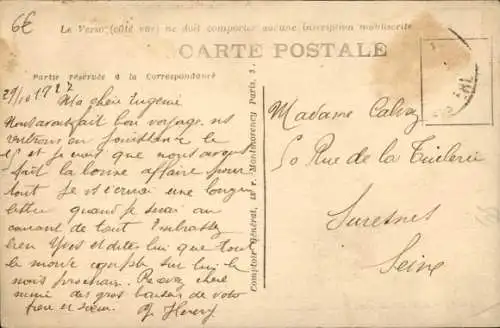 6€
Le Verso (côté vue) ne doit comporter aucune inscription manuscrite
CARTE POSTALE
Partie réservée à la Correspondance
29/10 1927
Ma chère Eugénie
Nous avons fait bon voyage. ns
entrons en jouissance le
et je crois que nous avons
fait la bonne affaire pour
tout Je t'écrirai une longue
lettre quand je serai au
courant de tout Embrasse
bien Yves et dites lui que tout
le monde compte sur lui le
mois prochain. Recevez chère
mimi des gros baisers de votre
frère et sœur. Henry
Comptoir Général, 18 r. Montmorency Paris. 3.
Madame Calvay
50 Rue de la Tuilerie
Suresnes
Seine